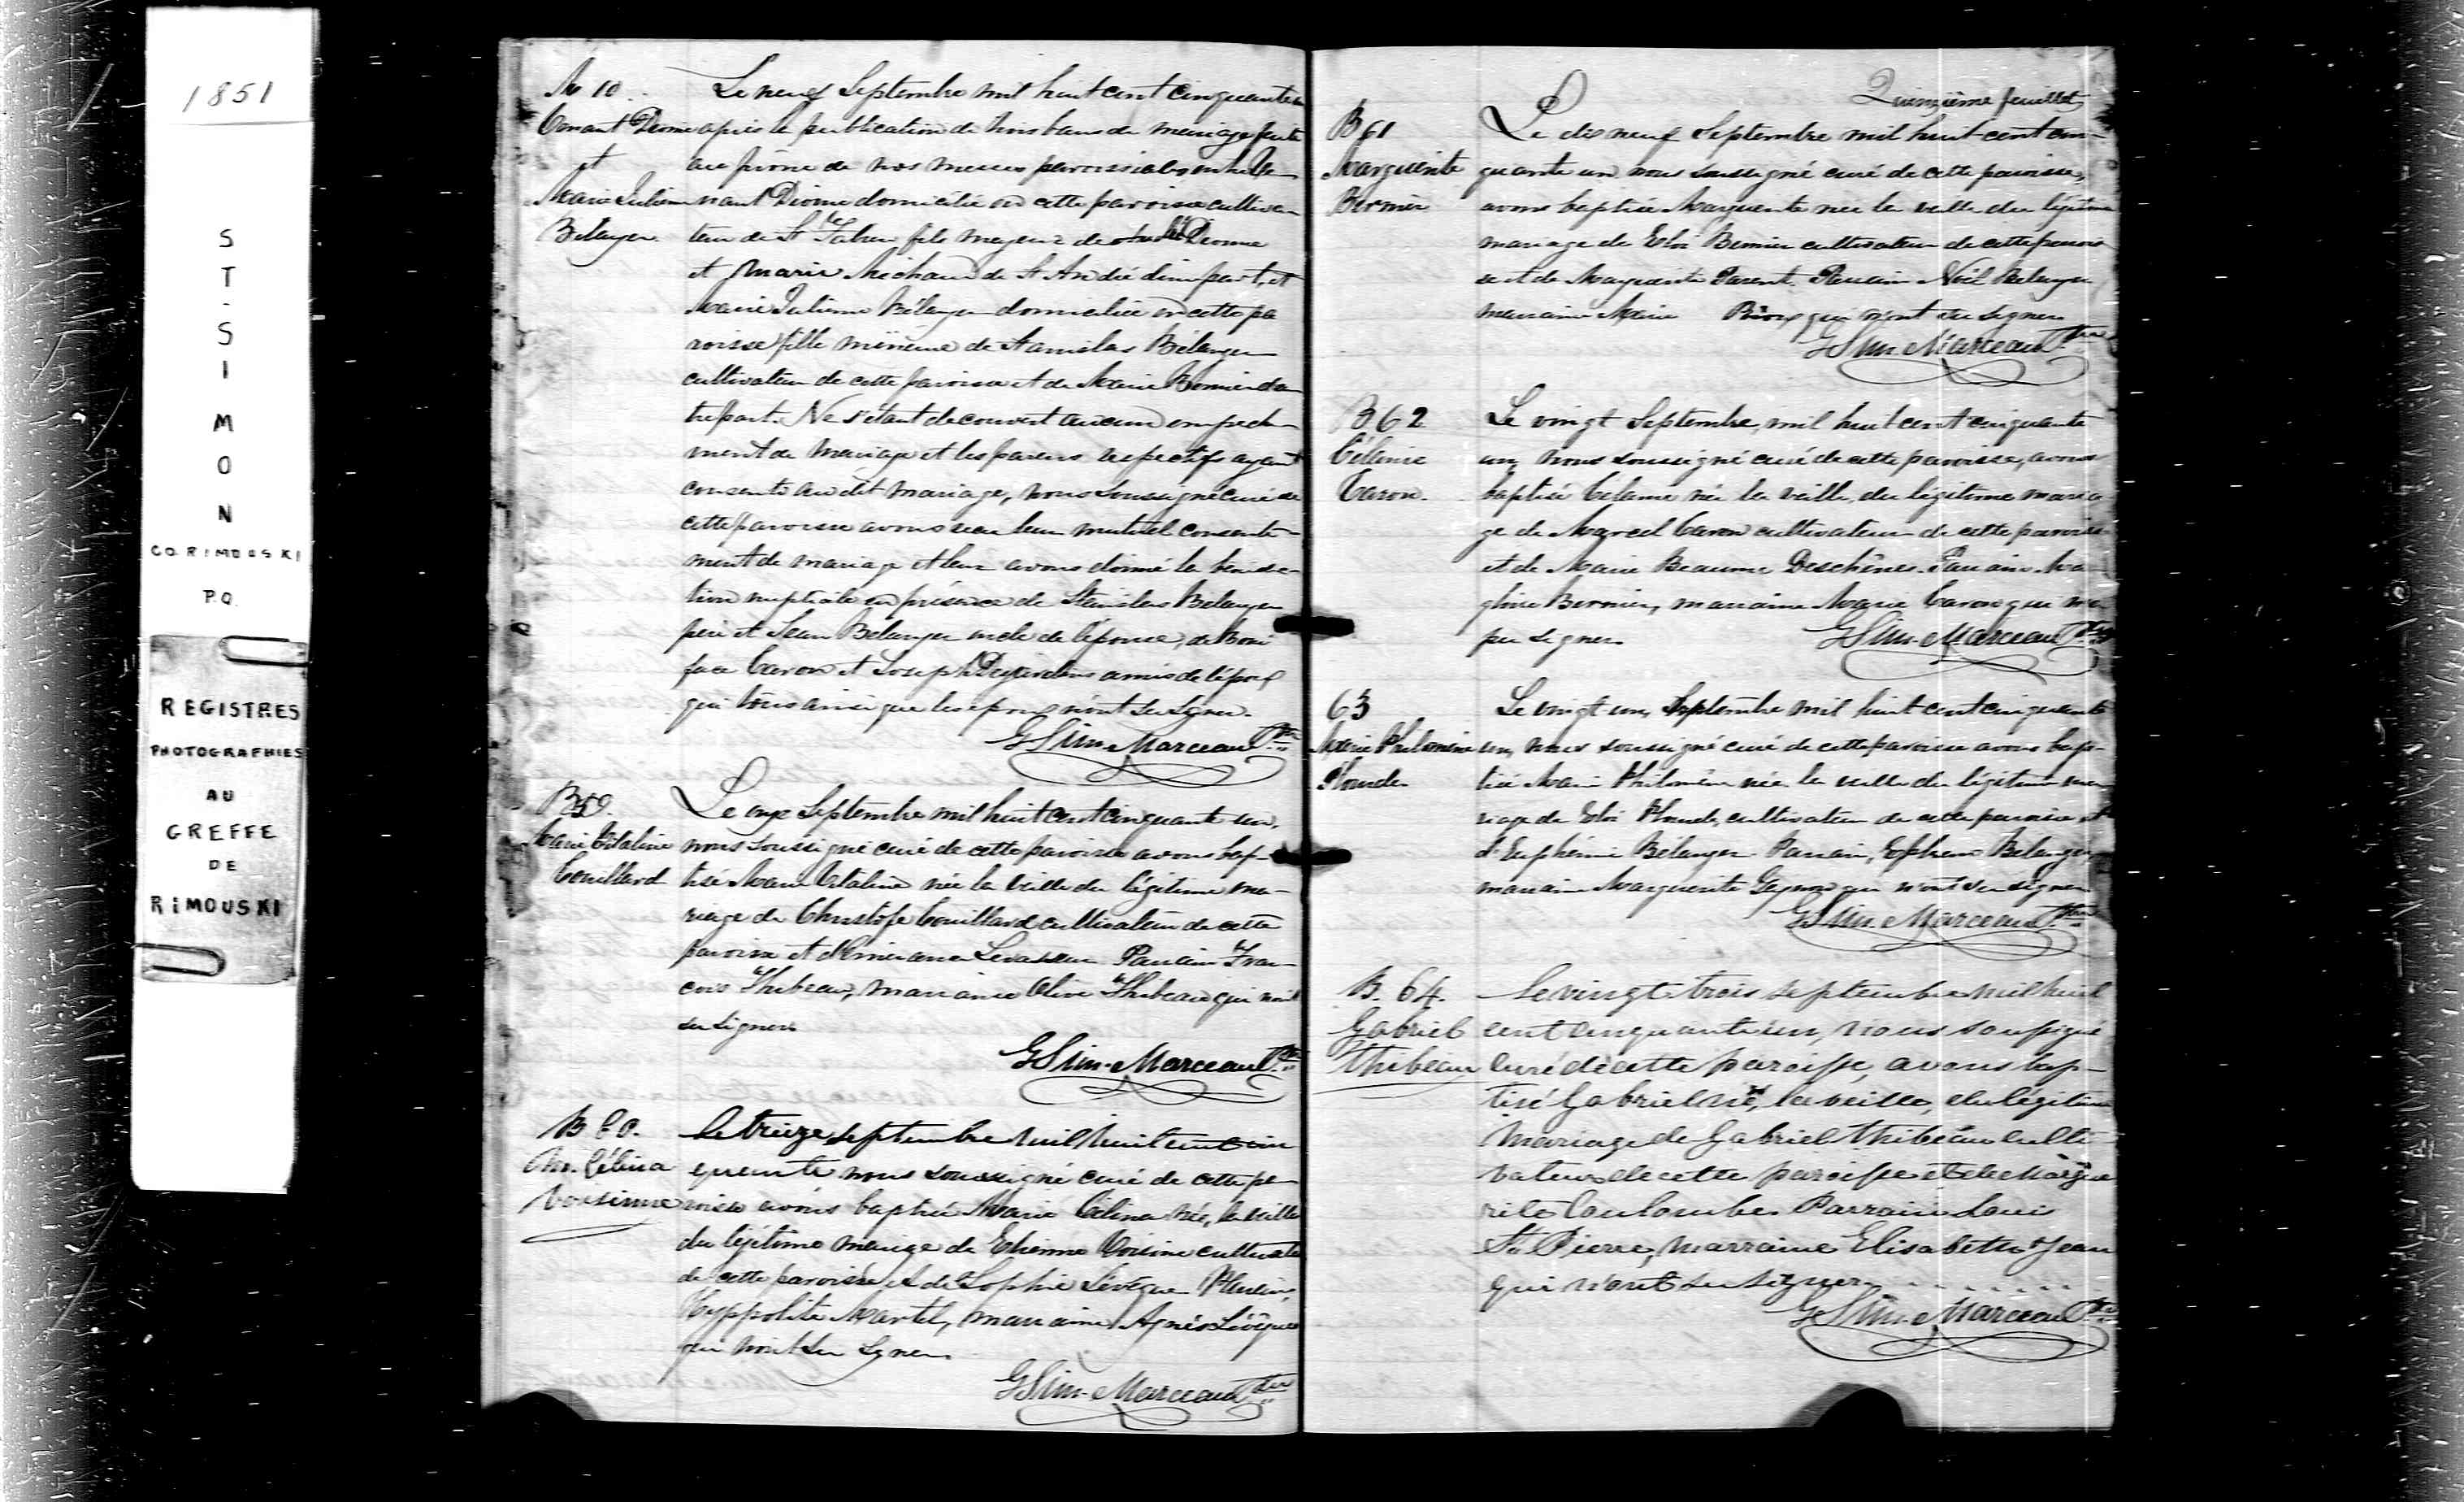 1851
ST-SIMON
CO. RIMOUSKI
P.Q.
REGISTRES
PHOTOGRAPHIES
AU
GREFFE
DE
RIMOUSKI
M 10
Dionne
et
Marie Julienne
Bélanger
Le neuf Septembre mil huit cent cinquante un
après la publication de trois bans de mariage faite
au prône de nos messes paroissiales entre
nant Dionne domicilié en cette paroisse cultiva-
teur de St fils majeur de Dionne
et Marie Michaud de St André d'une part, et
Marie Julienne Bélanger domiciliée en cette pa
roisse fille mineure de Stanislas Bélanger
cultivateur de cette paroisse et de Marie Bernier d'au
tre part. Ne s'étant découvert aucun empêche-
ment de mariage et les parens respectifs ayant
consenti au dit mariage, nous soussigné curé de
cette paroisse avons reçu leur mutuel consente-
ment de mariage et leur avons donné la bénédic-
tion nuptiale en présence de Stanislas Bélanger
père et Jean Bélanger oncle de l'épouse, de Boni
face Caron et Joseph Desjardins amis de l'époux
qui tous ainsi que les époux n'ont su signer.
G Sim. Marceau Ptre
B 59.
Marie Vitaline
Couillard
Le onze Septembre mil huit cent cinquante un,
nous soussigné curé de cette paroisse avons bap-
tisé Marie Vitaline née la veille du légitime ma-
riage de Christofe Couillard cultivateur de cette
paroisse et d'Emérance Levasseur Parrain Fran-
cois Thibeau, marraine Olive Thibeau qui n'ont
su signer
G Sim. Marceau Ptre
B 60.
M. Célina
Voisinne
Le treize septembre mil huit cent cin
quante nous soussigné curé de cette pa
roisse avons baptisé Marie Célina née, la veille
du légitime mariage de Etienne Voisine cultivate
de cette paroisse et de Sophie Lévêque Parrain,
Hyppolite Martel, marraine Agnès Lévêque
qui n'ont su signer
G Sim. Marceau Ptre
Quinzième feuillet
B 61
Marguerite
Bernier
Le dix neuf Septembre mil huit cent cin-
quante un nous soussigné curé de cette paroisse,
avons baptisé Marguerite née la veille du légitime
mariage de Eloi Bernier cultivateur de cette parois
se et de Marguerite Parent. Parrain Noël Belanger
marraine Marie Rioux qui n'ont su signer
G Sim. Marceau Ptre
B 62
Célanie
Caron.
Le vingt Septembre, mil huit cent cinquante
un, nous soussigné curé de cette paroisse, avons
baptisé Celanie née la veille du légitime maria
ge de Marcel Caron cultivateur de cette paroisse
et de Marie Beaume Deschênes. Parrain Ma
gloire Bernier, marraine Marie Caron qui n'on
pu signer
G Sim. Marceau Ptre
63
Marie Philomène
Plourde
Le vingt un, Septembre mil huit cent cinquante
un, nous soussigné curé de cette paroisse avons bap-
tisé Marie Philomène née la veille du légitime ma
riage de Eloi Plourde, cultivateur de cette paroisse et
d'Euphémie Bélanger Parrain, Ephrem Bélanger
marraine Marguerite Gagnon qui n'ont su signer
G Sim. Marceau Ptre
B. 64.
Gabriel
Thibeau
Le vingt trois septembre mil huit
cent cinquante un, nous soussigné
curé de cette paroisse, avons bap-
tisé Gabriel né, la veille, du légitime
mariage de Gabriel Thibeau culti
vateur de cette paroisse et de Margue
rite Coulombe. Parrain Louis
St Pierre, marraine Elisabeth St Jean
qui n'ont su signer
G Sim. Marceau Ptre